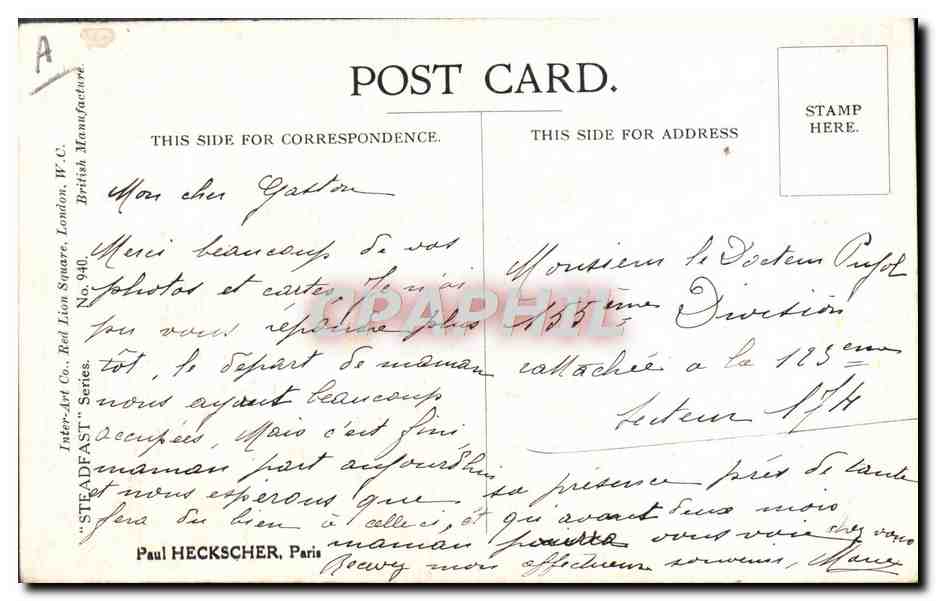 A
POST CARD.
THIS SIDE FOR CORRESPONDENCE.
THIS SIDE FOR ADDRESS
STAMP
HERE.
Inter-Art Co., Red Lion Square, London, W.C.
British Manufacture.
"STEADFAST" Series. No. 940.
Mon cher Gaston
Merci beaucoup de vos
photos et cartes, Je n'ai
pu vous répondre plus
tôt, le départ de maman
nous ayant beaucoup
occupées, Mais c'est fini,
maman part aujourd'hui
et nous espérons que sa présence près de tante
fera du bien à celle ci, et qui avant deux mois
maman pourra vous voir chez vous
Recevez mon affectueux souvenir,
Monsieur le Docteur Pujol
155ème Division
rattachée a la 123eme
Secteur 174
Paul HECKSCHER, Paris
CPAPHIL